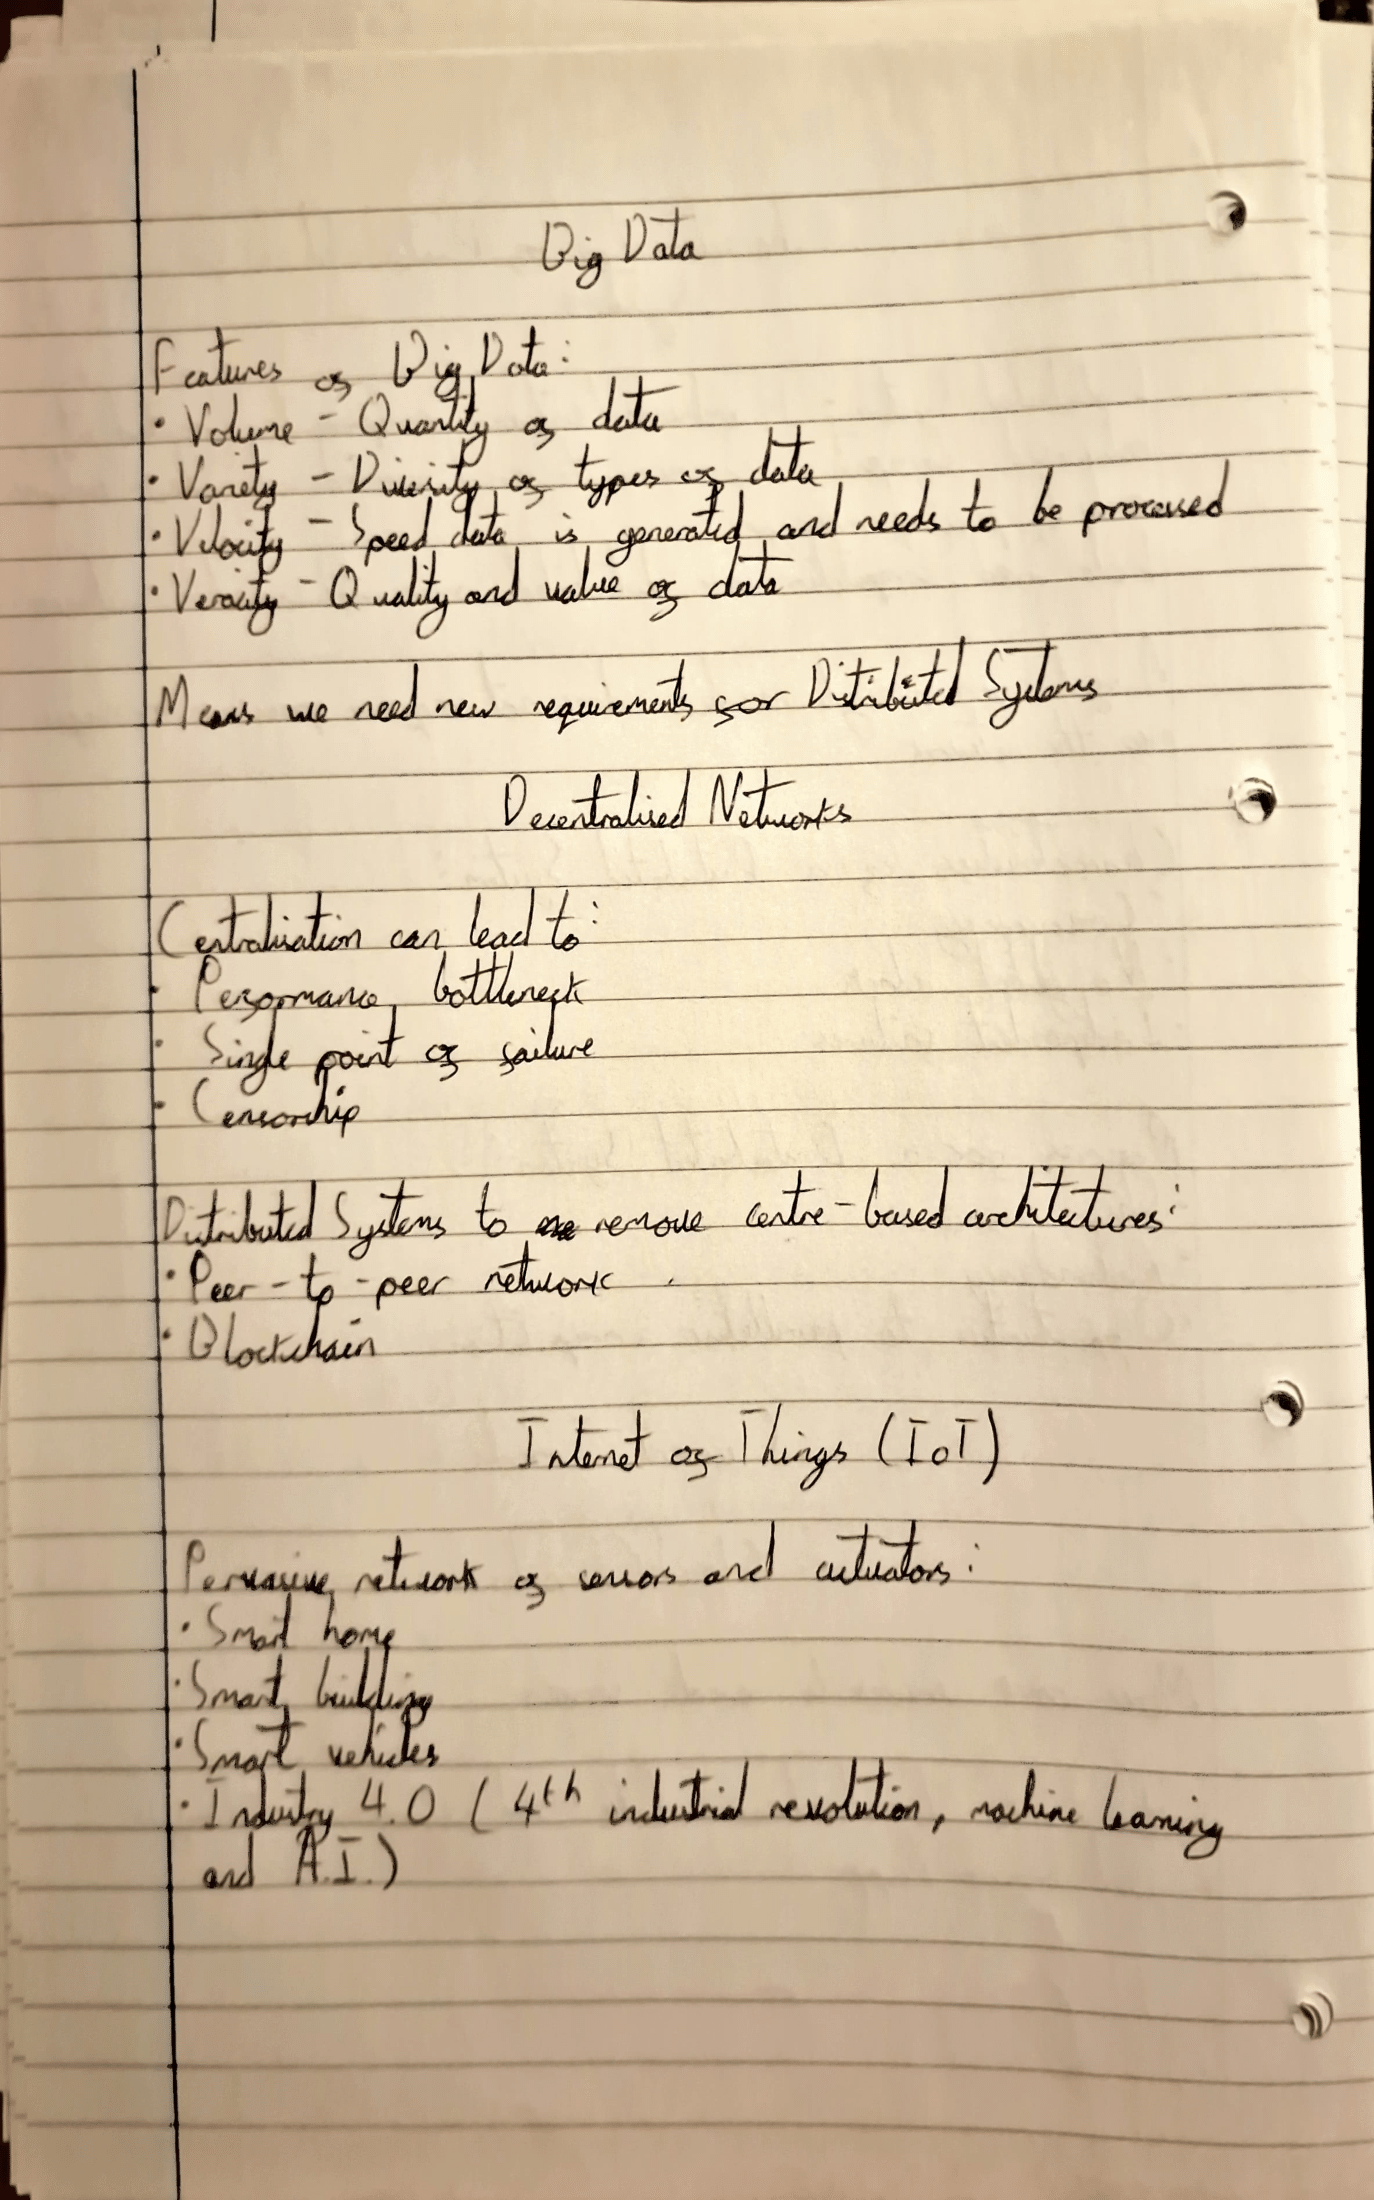 Big Data
Features of Big Data:
• Volume - Quantity of data
• Variety - Diversity of types of data
• Velocity - Speed data is generated and needs to be processed
• Veracity - Quality and value of data
Means we need new requirements for Distributed Systems
Decentralised Networks
Centralisation can lead to:
• Performance bottleneck
• Single point of failure
• Censorship
Distributed Systems to remove centre-based architectures:
• Peer-to-peer network
• Blockchain
Internet of Things (IoT)
Pervasive network of sensors and actuators:
• Smart home
• Smart building
• Smart vehicles
• Industry 4.0 (4th industrial revolution, machine learning
and A.I.)